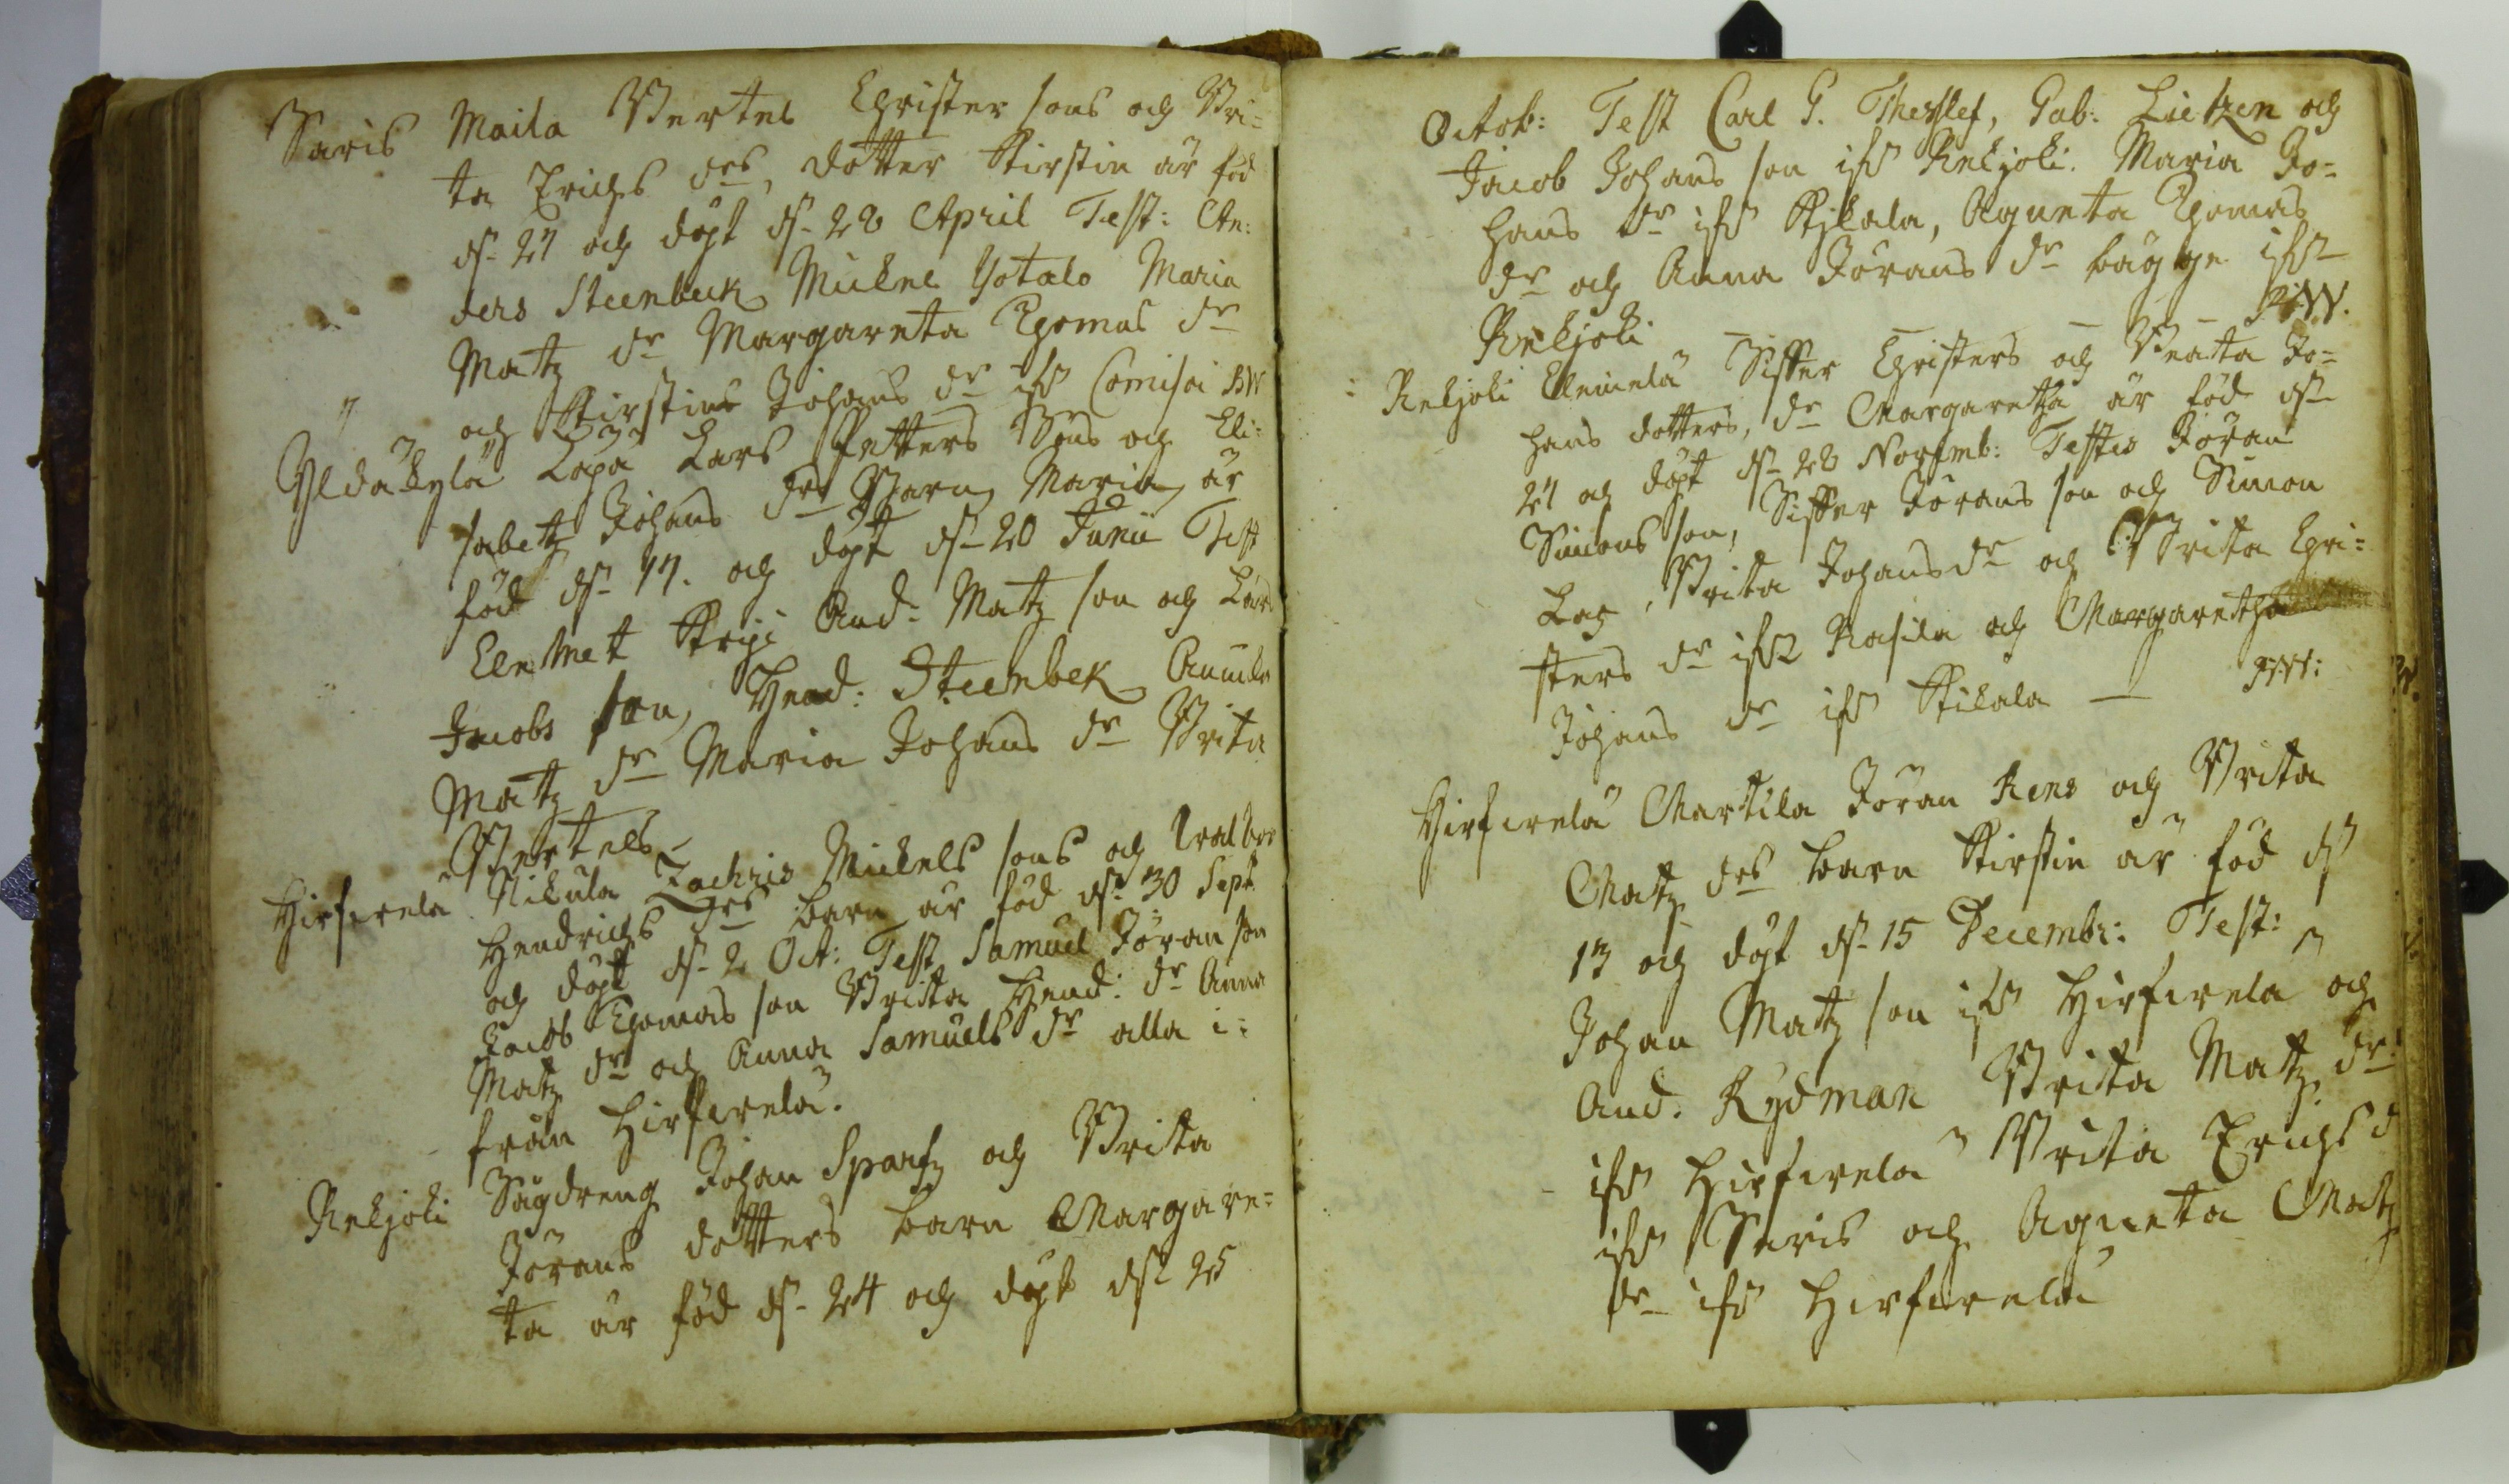 Saris Maila Bertel Christer sons och Bri-
ta Erichs drs, dotter Kirstin är föd
dn 27 och döpt dn 28 April Test: An-
ders Steenbeck Mickel Yotalo Maria
Matz dr Margareta Thomas dr
och Kirstin Johans dr ifrå
Yldäkylä Lapa Lars Petters Sons och Eli-
sabetz Johans drs Barn Maria är
föd dn 17. och döpt dn 20 Junii Test
And: Matz son och Lars
Jacobs son, Hend: Steenbek
Matz dr Maria Johans dr Brita
Bertels
Hirfirelä Nikula Zachris Mickels sons och Walbor
Hendrichs drs barn är föd dn 30 Sept
och döpt dn 2 Oct: Test Samuel Jöran son
Jacob Thomas son Brita Hend: dr Anna
Matz dr och Anna Samuels dr alla i-
från Hirfirelä.
Rekjoki Sågdreng Johan Sparf och Brita
Jörans dotters barn Margare-
ta är föd dn 24 och döpt dn 25
Octob: Test Carl G. Thesslef, Gab: Lietzen och
Jacob Johans son ifrå Rekjoki. Maria Jo-
hans dr ifrå Kikala, Agneta Thomas
dr och Anna Jörans dr bägge ifrå
Rekjoki
Rekjoki Sisfer Christers och Beata Jo-
hans dotters, dr Margaretha är född dn
27 och döpt dn 28 Novemb: Testes Jöran
Simons son, Sisfer Jörans son och Simon
Brita Johans dr och Brita Chri-
sters dr ifrå Rasila och Margaretha
Johans dr ifrå Kikala —
Hirfirelä Martila Jöran Rens och Brita
Matz drs barn Kirstin är föd dn
13 och döpt dn 15 Decembr: Test:
Johan Matz son ifrå Hirfirelä och
And. Rydman Brita Matz dr
ifrå Hirfirelä Brita Erichs d
ifrå Saris och Agneta Matz
dr ifrå Hirfirelä